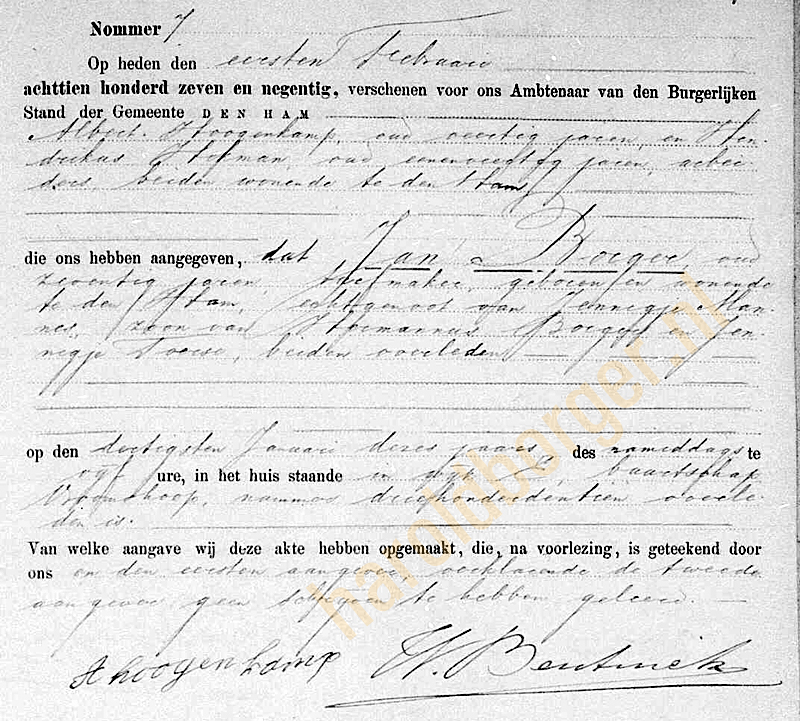 Nommer 7
Op heden den eersten Februari
achttien honderd zeven en negentig, verschenen voor ons Ambtenaar van den Burgerlijken
Stand der Gemeente DEN HAM
Albert Hoogenkamp, oud veertig jaren, en Hen-
drikus Hofman, oud eenenveertig jaren, arbei-
ders beiden wonende te den Ham
die ons hebben aangegeven, dat Jan Borger, oud
zeventig jaren, geboren en wonende
te den Ham, echtgenoot van Jennigje Man-
nes, zoon van Hermannus Borger en Jen-
nigje beiden overleden
op den dertigsten Januari dezes jaars des namiddags te
ure, in het huis staande in wijk buurtschap
Vroomshoop, nummer driehonderdentien overle-
den is.
Van welke aangave wij deze akte hebben opgemaakt, die, na voorlezing, is geteekend door
ons en den eersten aangever, verklarende de tweede
aangever geen schrijven te hebben geleerd.
A hoogenkamp W. Bentinck
haroldborger.nl